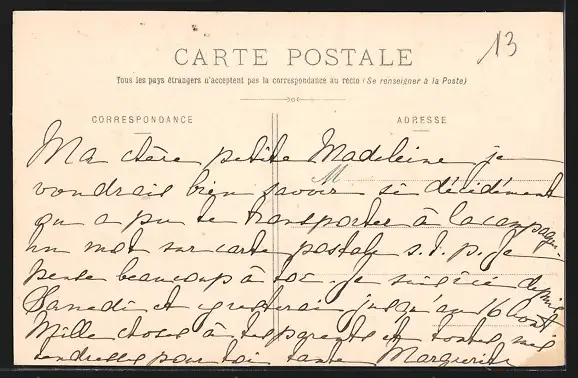 13
CARTE POSTALE
Tous les pays étrangers n'acceptent pas la correspondance au recto (Se renseigner à la Poste)
CORRESPONDANCE
ADRESSE
M
Ma chère petite Madeleine je
voudrais bien savoir si décidément
on a pu te transporter à la campagne
un mot sur carte postale s. t. p. je
pense beaucoup à toi. je suis ici depuis
Samedi et y resterai jusqu'au 16 Août
Mille choses à tes parents et toutes mes
tendresses pour toi tante Marguerite